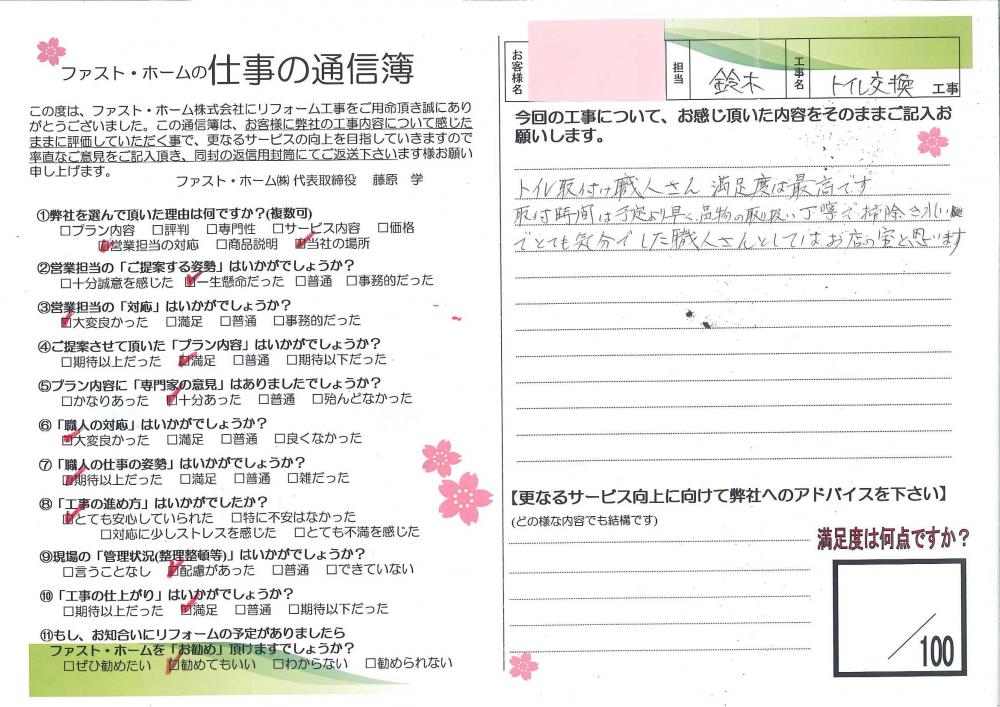 ファスト・ホームの仕事の通信簿
この度は、ファスト・ホーム株式会社にリフォーム工事をご用命頂き誠にあり
がとうございました。この通信簿は、お客様に弊社の工事内容について感じた
ままに評価していただく事で、更なるサービスの向上を目指していきますので
率直なご意見をご記入頂き、同封の返信用封筒にてご返送下さいます様お願い
申し上げます。
ファスト・ホーム㈱ 代表取締役 藤原 学
①弊社を選んで頂いた理由は何ですか?(複数可)
□プラン内容 □評判 □専門性 □サービス内容 □価格
□営業担当の対応 □商品説明 □当社の場所
②営業担当の「ご提案する姿勢」はいかがでしょうか?
□十分誠意を感じた □一生懸命だった □普通 □事務的だった
③営業担当の「対応」はいかがでしょうか?
□大変良かった □満足 □普通 □事務的だった
④ご提案させて頂いた「プラン内容」はいかがでしょうか?
□期待以上だった □満足 □普通 □期待以下だった
⑤プラン内容に「専門家の意見」はありましたでしょうか?
□かなりあった □十分あった □普通 □殆んどなかった
⑥「職人の対応」はいかがでしょうか?
□大変良かった □満足 □普通 □良くなかった
⑦「職人の仕事の姿勢」はいかがでしょうか?
□期待以上だった □満足 □普通 □雑だった
⑧「工事の進め方」はいかがでしたか?
□とても安心していられた □特に不安はなかった
□対応に少しストレスを感じた □とても不満を感じた
⑨現場の「管理状況(整理整頓等)」はいかがでしょうか?
□言うことなし □配慮があった □普通 □できていない
⑩「工事の仕上がり」はいかがでしょうか?
□期待以上だった □満足 □普通 □期待以下だった
⑪もし、お知合いにリフォームの予定がありましたら
ファスト・ホームを「お勧め」頂けますでしょうか?
□ぜひ勧めたい □勧めてもいい □わからない □勧められない
お客様名
担当 鈴木
工事名 トイレ交換 工事
今回の工事について、お感じ頂いた内容をそのままご記入お
願いします。
トイレ取付け職人さん 満足度は最高です
取付時間は予定より早く、品物の取り扱い丁寧で掃除きれい
でとても気分でした職人さんとしてはお店の宝と思います
【更なるサービス向上に向けて弊社へのアドバイスを下さい】
(どの様な内容でも結構です)
満足度は何点ですか?
/100